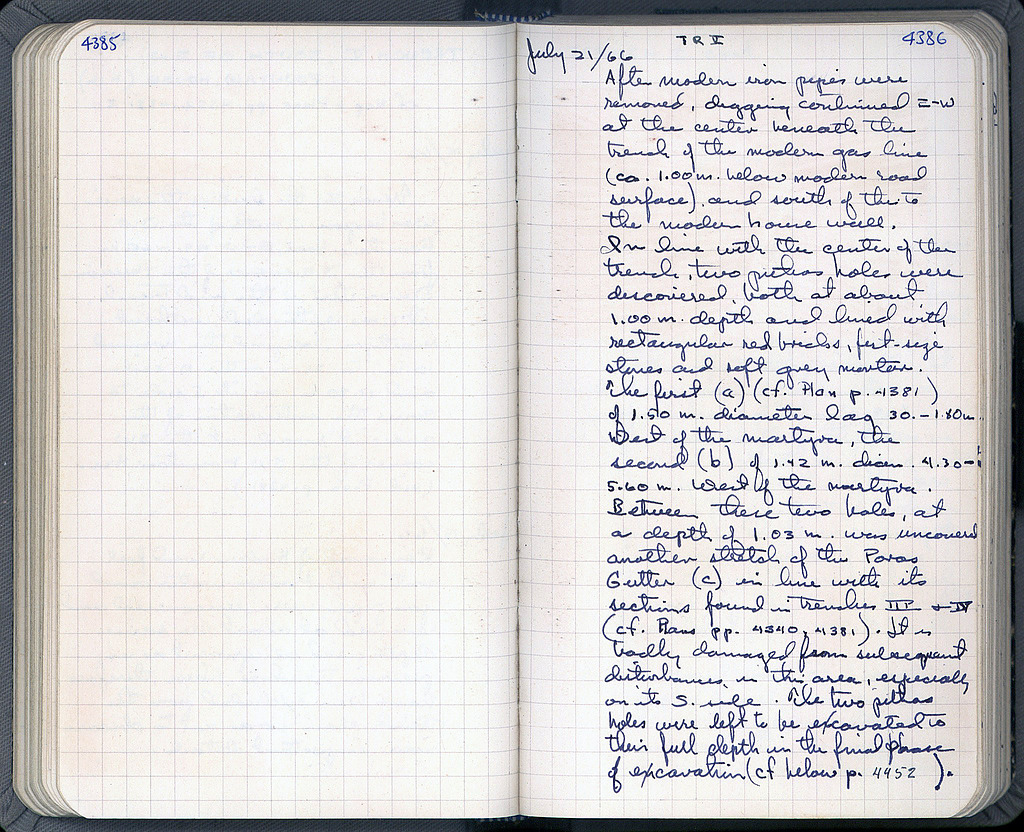 4385
TR V
4386
July 21/66
After modern iron pipes were
removed, digging continued E-W
at the center beneath the
trench of the modern gas line
(ca. 1.00 m. below modern road
surface), and south of this to
the modern house wall.
In line with the center of the
trench, two pithos holes were
discovered, both at about
1.00 m. depth and lined with
rectangular red bricks, fist-size
stones and soft grey mortar.
The first (a) (cf. Plan p. 4381)
of 1.50 m. diameter lay 30.-1.80m.
West of the martyra, the
second (b) of 1.42 m. diam. 4.30-
5.60 m. West of the martyra.
Between these two holes, at
a depth of 1.03 m. was uncovered
another stretch of the Poros
Gutter (c) in line with its
sections found in trenches III + IV
(cf. Plans pp. 4340, 4381). It is
badly damaged from subsequent
disturbances in this area, especially
on its S. side. The two pithos
holes were left to be excavated to
their full depth in the final phase
of excavation (cf below p. 4452 ).